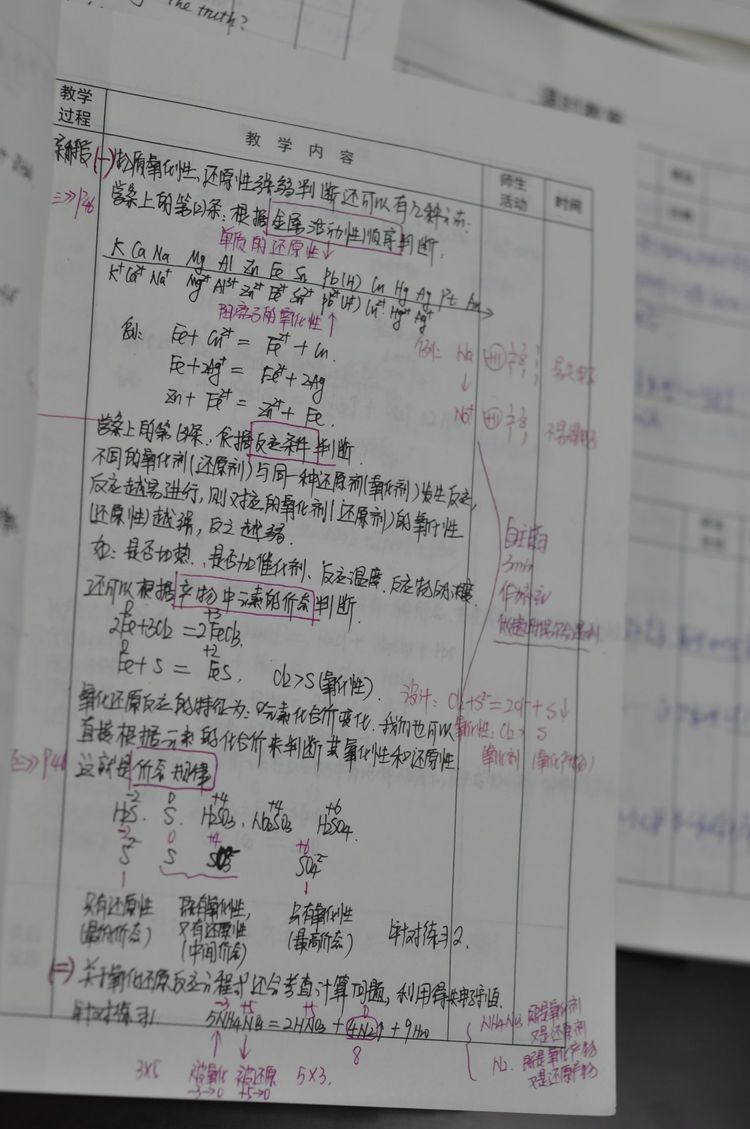 the truth?
教学
过程
教 学 内 容
师生
活动
时间
新授 (一) 物质氧化性、还原性强弱判断还可以有几种方法:
学案上的第(2)条:根据金属活动性顺序判断.
=>> P46
单质的还原性↓
K Ca Na Mg Al Zn Fe Sn Pb (H) Cu Hg Ag Pt Au
K⁺ Ca²⁺ Na⁺ Mg²⁺ Al³⁺ Zn²⁺ Fe²⁺ Sn²⁺ Pb²⁺ (H⁺) Cu²⁺ Hg²⁺ Ag⁺
阳离子的氧化性↑
例: Fe + Cu²⁺ = Fe²⁺ + Cu.
Fe + 2Ag⁺ = Fe²⁺ + 2Ag
Zn + Fe²⁺ = Zn²⁺ + Fe.
例: Na +11 易失电子
↓
Na⁺ +11 不易得电子
学案上的第(3)条,依据反应条件判断.
不同的氧化剂(还原剂)与同一种还原剂(氧化剂)发生反应,
反应越易进行,则对应的氧化剂(还原剂)的氧化性
(还原性)越强,反之越弱.
如:是否加热、是否加催化剂、反应温度、反应物的浓度.
还可以根据产物中元素的价态判断.
自主
3min
0 +3
2Fe+3Cl₂ = 2FeCl₃
0 +2
Fe + S = FeS, Cl₂>S(氧化性).
设计: Cl₂+S²⁻=2Cl⁻+S↓
氧化性: Cl₂ > S
氧化剂 (氧化产物)
氧化还原反应的特征为:元素化合价变化. 我们也可以
直接根据元素的化合价来判断其氧化性和还原性.
这就是价态规律
=>> P46
-2 0 +4 +4 +6
H₂S. S. H₂SO₃, Na₂SO₃ H₂SO₄.
-2 0 +4 +6
S²⁻ S SO₃²⁻ SO₄²⁻
只有还原性 既有氧化性, 只有氧化性
(最低价态) 又有还原性 (最高价态) 针对练习2.
(中间价态)
(二) 关于氧化还原反应方程式还会考查计算问题,利用得失电子守恒.
针对练习1.
-3 +5 +5 0
5NH₄NO₃ = 2HNO₃ + 4N₂↑ + 9H₂O
8
3×5 被氧化 被还原 5×3.
-3→0 +5→0
NH₄NO₃ 既是氧化剂
又是还原剂
N₂. 既是氧化产物
又是还原产物